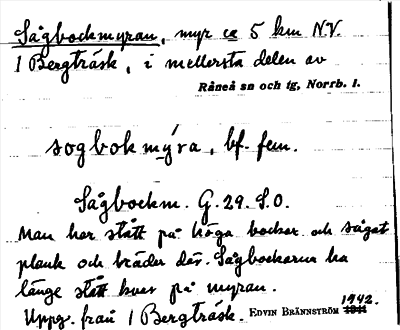 Sågbockmyran, myr ca 5 km NV.
1 Bergträsk, i mellersta delen av
Råneå sn och tg, Norrb. l.
sogbokmýra, bf. fem.
Sågbockm. G. 29. S.O.
Man har stått på höga bockar och sågat
plank och bräder där. Sågbockarna ha
länge stått kvar på myran.
Uppg. från 1 Bergträsk. EDVIN BRÄNNSTRÖM 1942.